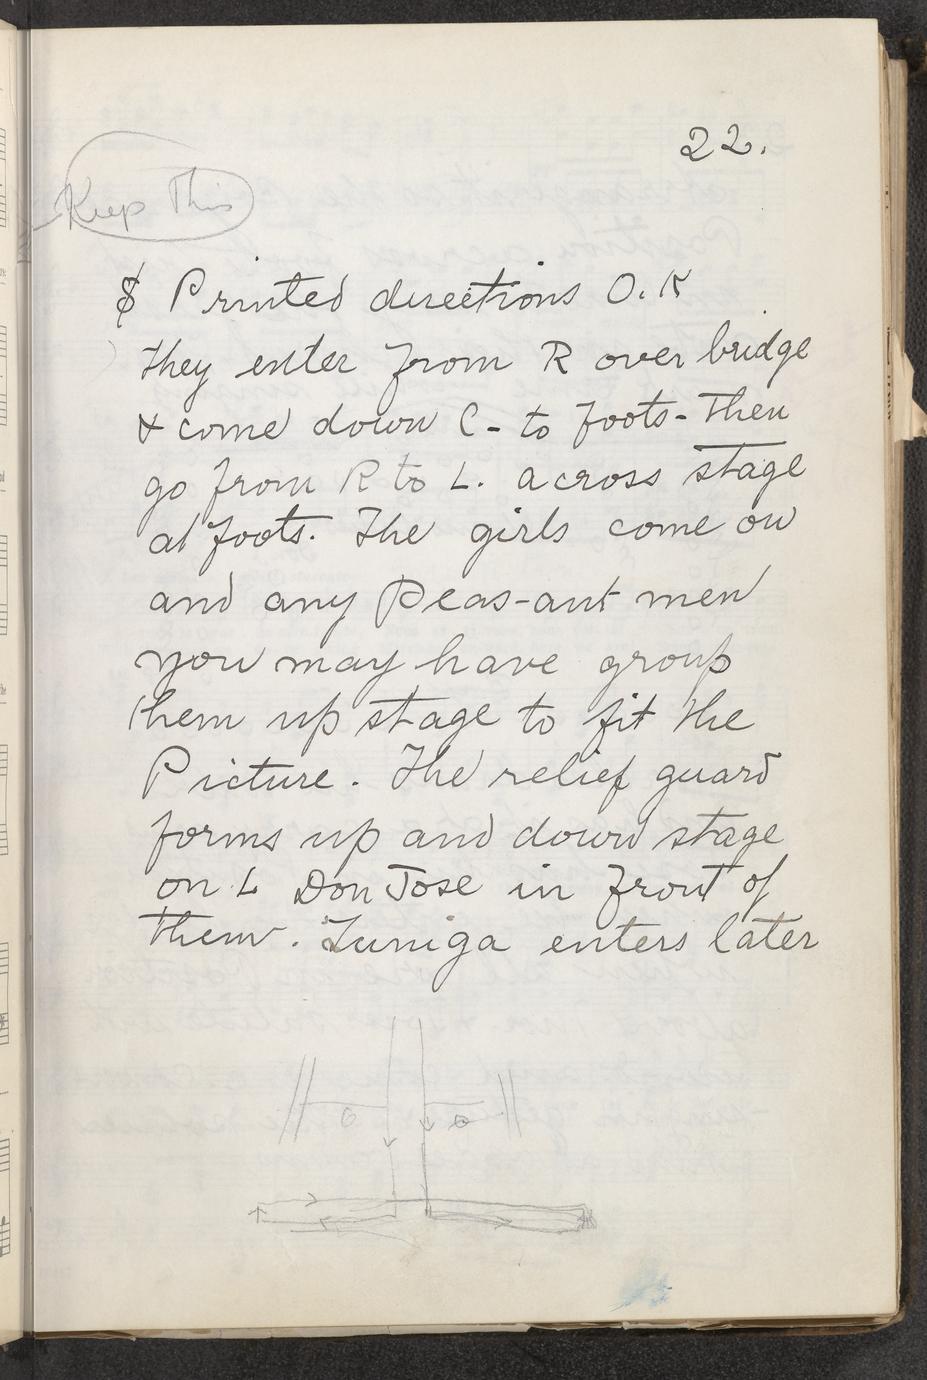 22.
Keep This
$ Printed directions O.K
They enter from R over bridge
& come down C - to foots - Then
go from R to L. across stage
at foots. The girls come on
and any Peas-ant men
you may have group
them up stage to fit the
Picture. The relief guard
forms up and down stage
on L Don Jose in front of
them. Zuniga enters later